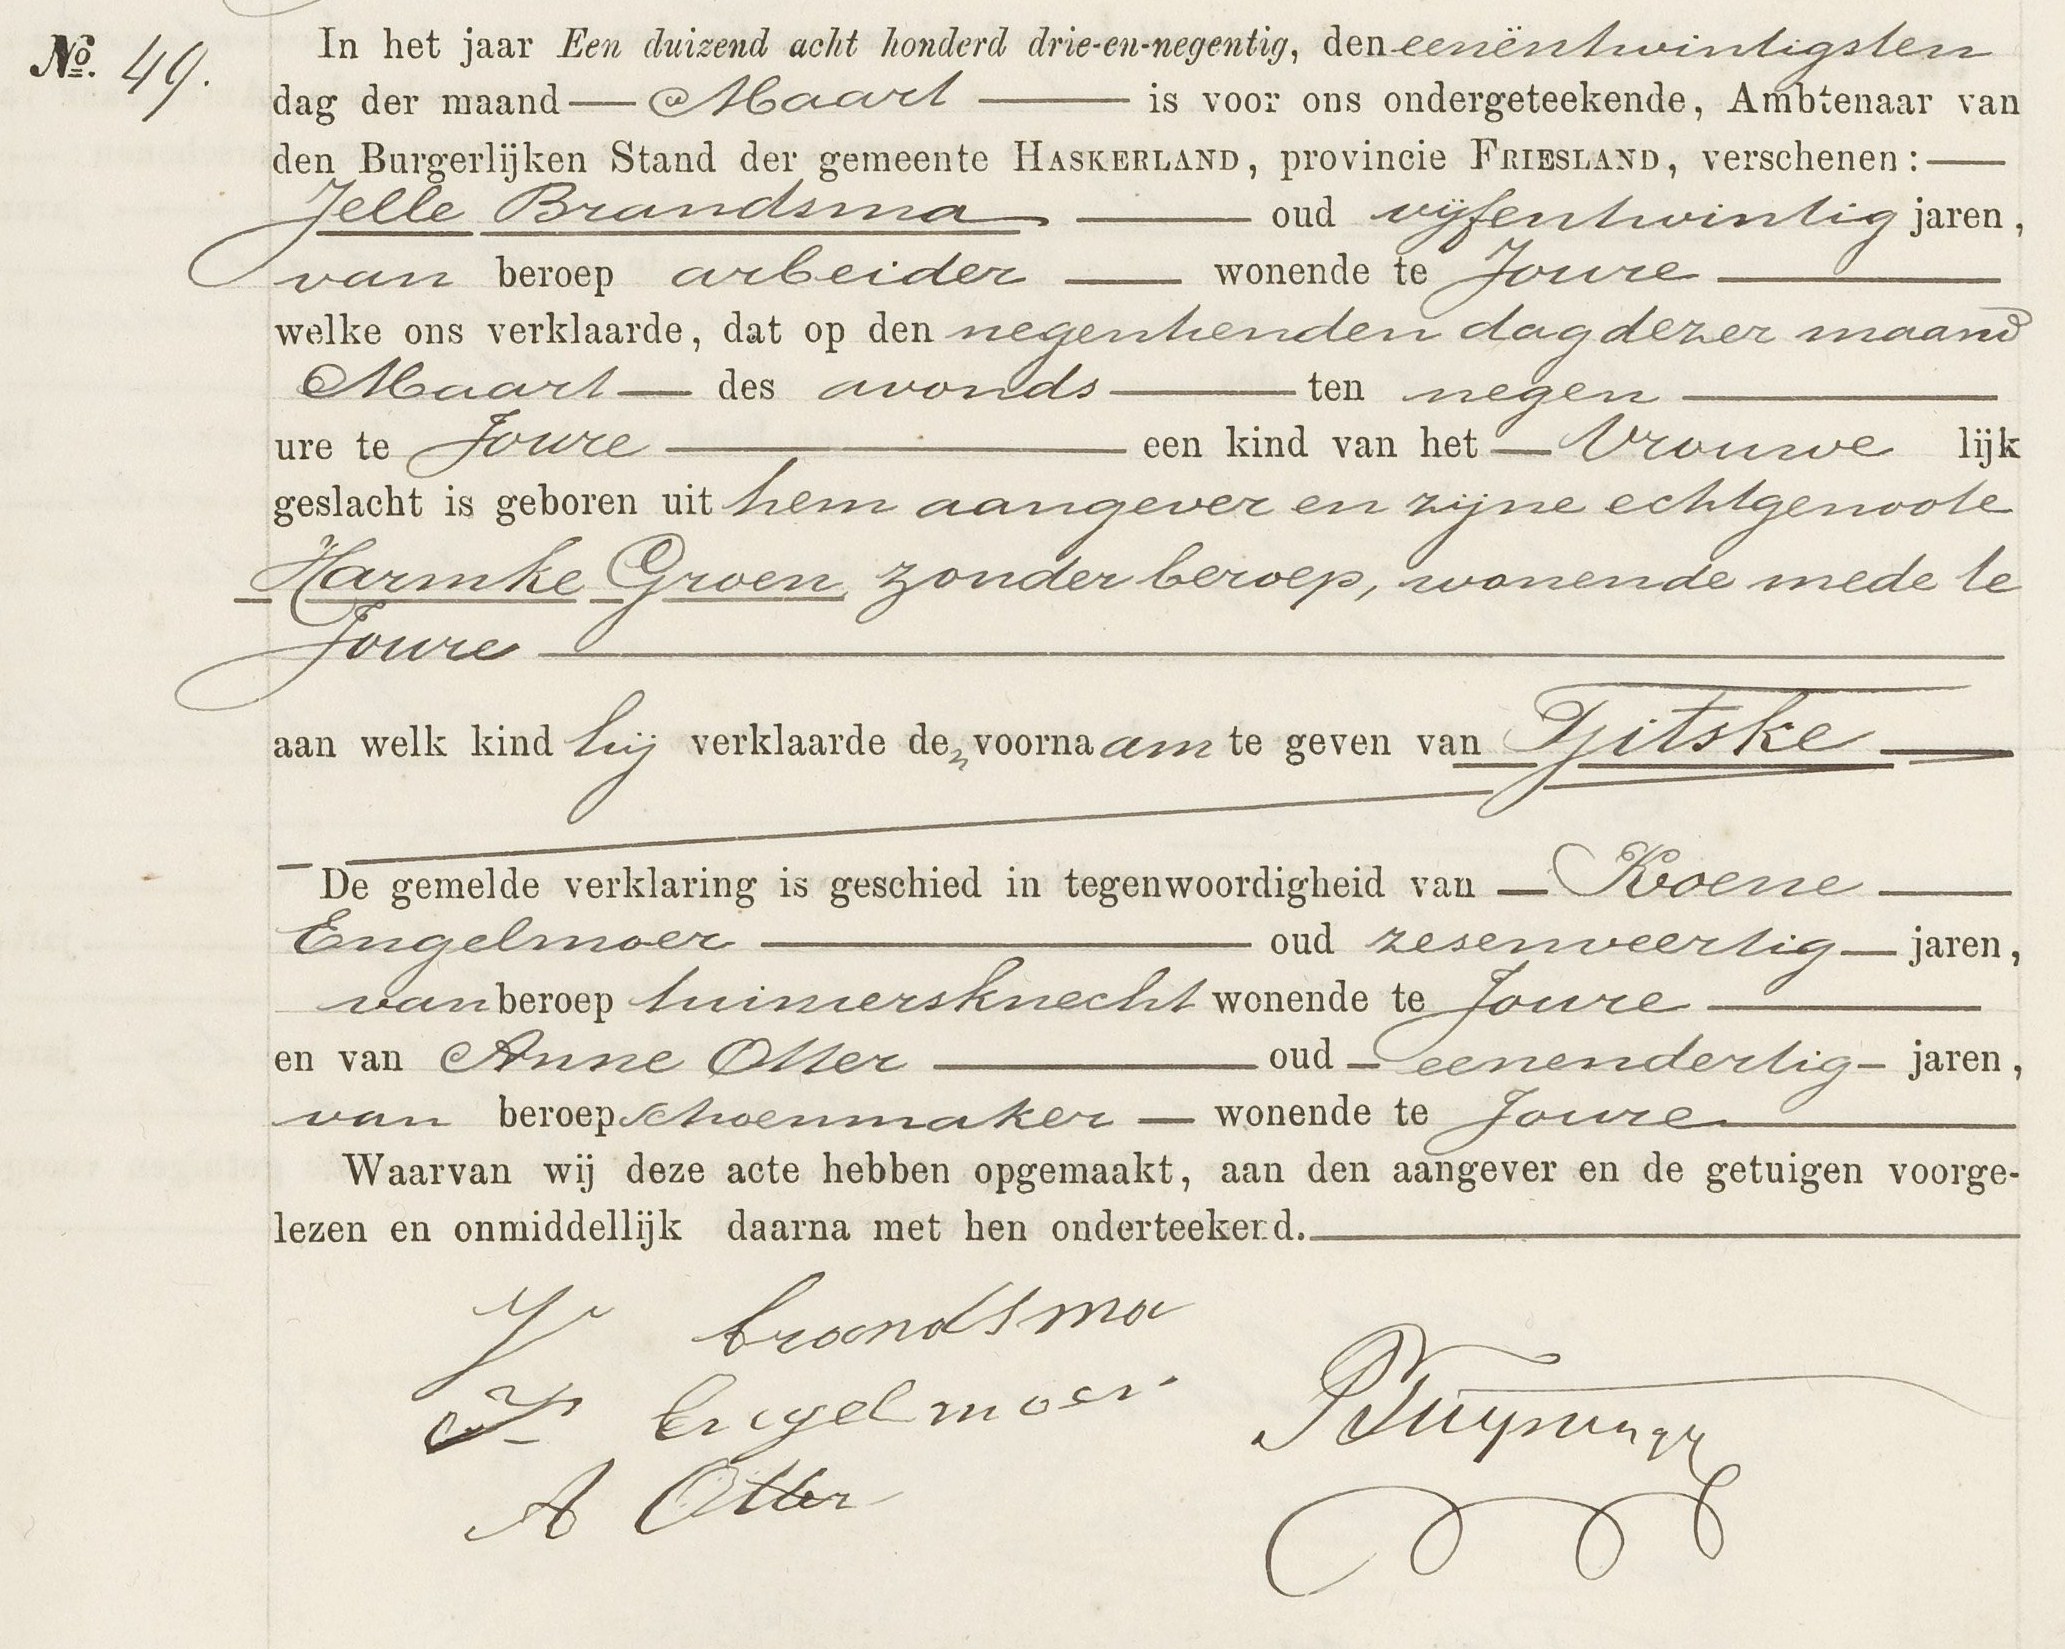 No. 49.
In het jaar Een duizend acht honderd drie-en-negentig, den eenëntwintigsten
dag der maand — Maart — is voor ons ondergeteekende, Ambtenaar van
den Burgerlijken Stand der gemeente HASKERLAND, provincie FRIESLAND, verschenen: —
Jelle Brandsma — oud vijfentwintig jaren,
van beroep arbeider — wonende te Joure —
welke ons verklaarde, dat op den negentienden dag dezer maand
Maart — des avonds — ten negen —
ure te Joure — een kind van het — Vrouwe lijk
geslacht is geboren uit hem aangever en zijne echtgenoote
Harmke Groen, zonder beroep, wonende mede te
Joure —
aan welk kind hij verklaarde den voornaam te geven van Tjitske —
De gemelde verklaring is geschied in tegenwoordigheid van — Koene —
Engelmoer — oud zesenveertig — jaren,
van beroep tuiniersknecht wonende te Joure —
en van Anne Otter — oud — eenendertig — jaren,
van beroep schoenmaker — wonende te Joure —
Waarvan wij deze acte hebben opgemaakt, aan den aangever en de getuigen voorge-
lezen en onmiddellijk daarna met hen onderteekend. —
J brandsma
K Engelmoer
A Otter